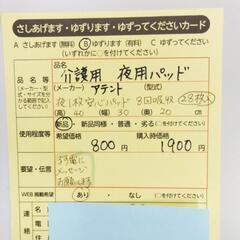 さしあげます・ゆずります・ゆずってくださいカード
A さしあげます（無料） B ゆずります（有料） C ゆずってください
（いずれかに○を付けてください）
品名等
介護用 夜用パッド
（メーカー） アテント （型式）
夜1枚安心パッド 8回吸収 28枚入
（高さ） 40 （幅） 30 （奥） 20 cm
使用程度等
新品・新品同様・普通・劣る（○を付けてください）
希望価格 800 円
購入時価格 1900 円
要望・伝言
メッセージ
お願いします
WEB掲載希望
あり・なし（○を付けてください）
連絡
住所
氏名
電話